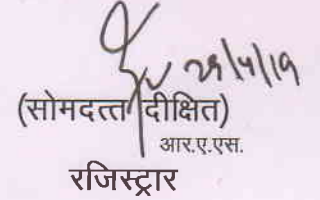 29/4/19
(सोमदत्त दीक्षित)
आर.ए.एस.
रजिस्ट्रार